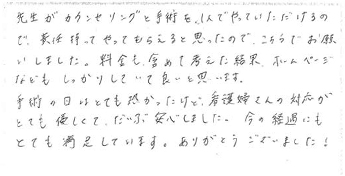 先生がカウンセリングと手術を、1人でやっていただけるの
で、責任持ってやってもらえると思ったので、こちらでお願
いしました。料金も含めて考えた結果、ホームページ
などもしっかりしていて良いと思います。
手術の日はとても恐かったけど、看護婦さんの対応が
とても優しくて、だいぶ安心しました。今の経過にも
とても満足しています。ありがとうございました!